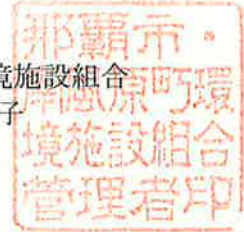 境施設組合
子
那覇市・
南風原町環
境施設組合
管理者印